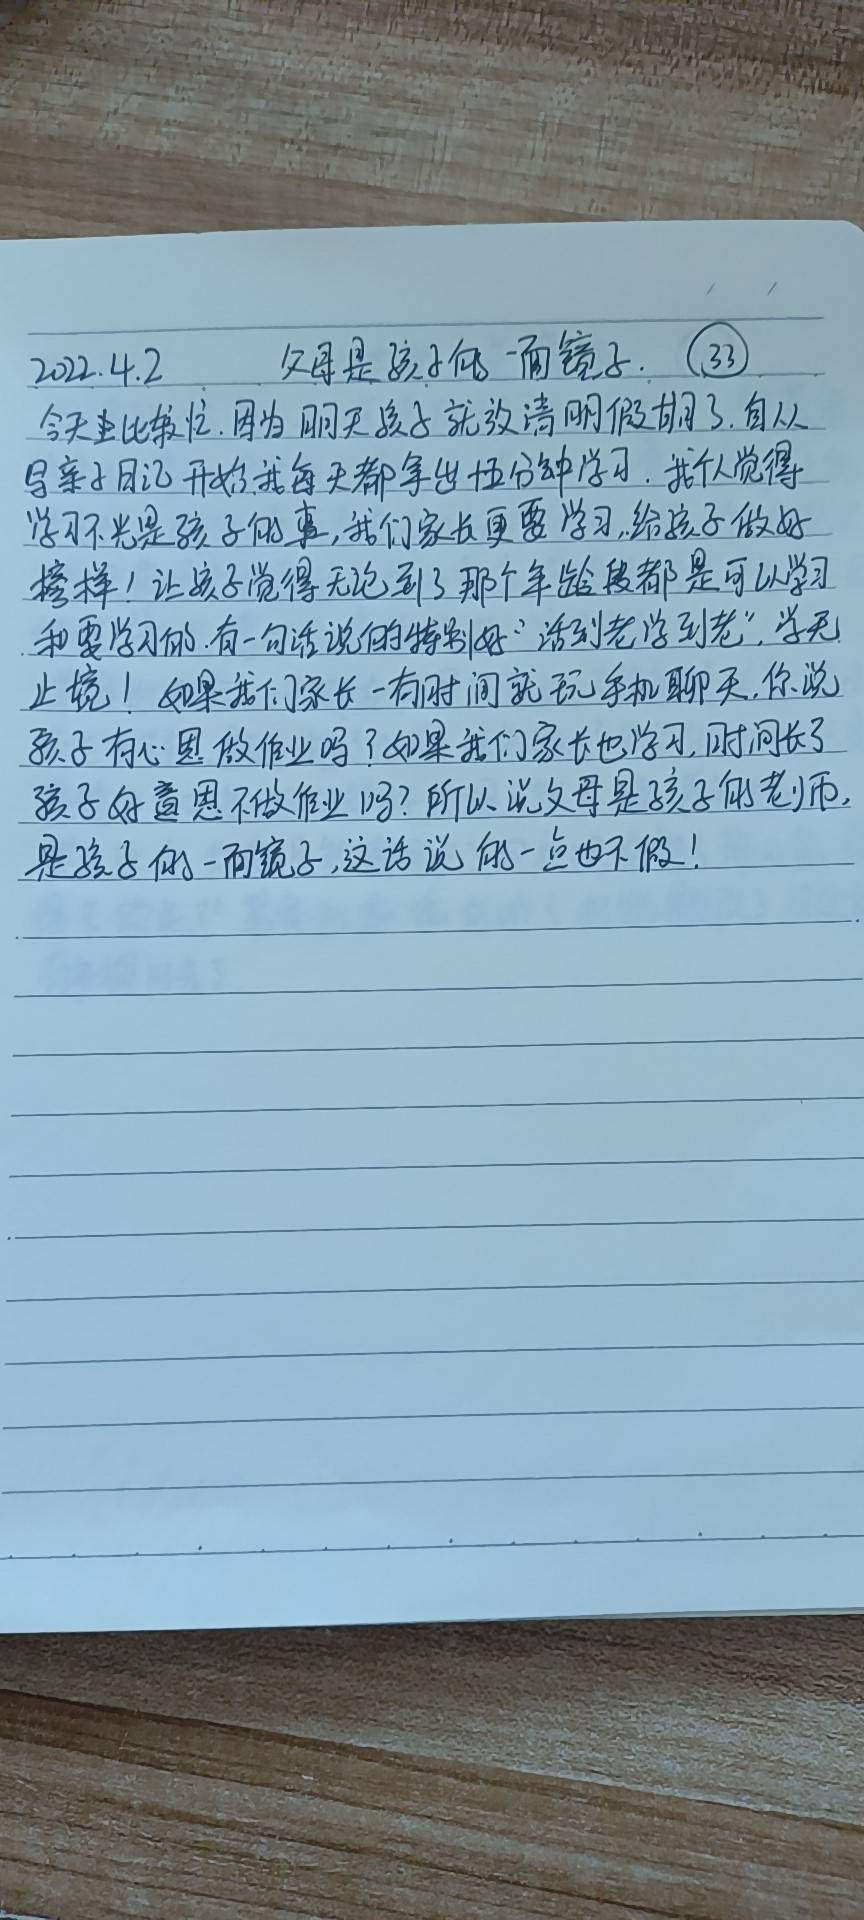 2022.4.2 父母是孩子的一面镜子. ㉝
今天比较忙.因为明天孩子就放清明假期了.自从
写亲子日记开始,我每天都拿出五分钟学习.我个人觉得
学习不光是孩子的事,我们家长更要学习,给孩子做好
榜样!让孩子觉得无论到了那个年龄段都是可以学习
和要学习的.有一句话说的特别好"活到老学到老",学无
止境!如果我们家长一有时间就玩手机聊天,你说
孩子有心思做作业吗?如果我们家长也学习,时间长了
孩子好意思不做作业吗?所以说父母是孩子的老师,
是孩子的一面镜子,这话说的一点也不假!